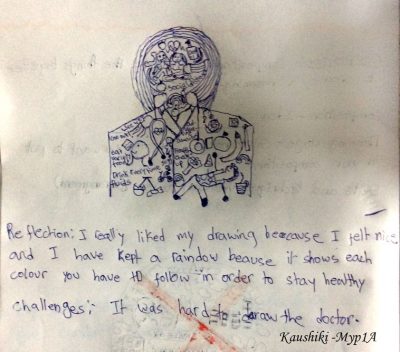 Society
eat
Drink Everytime
fluids
Reflection: I really liked my drawing beecause I felt nice
and I have kept a rainbow beause it shows each
colour you have to follow in order to stay healthy
challenges: It was hard to draw the doctor.
Kaushiki -Myp1A